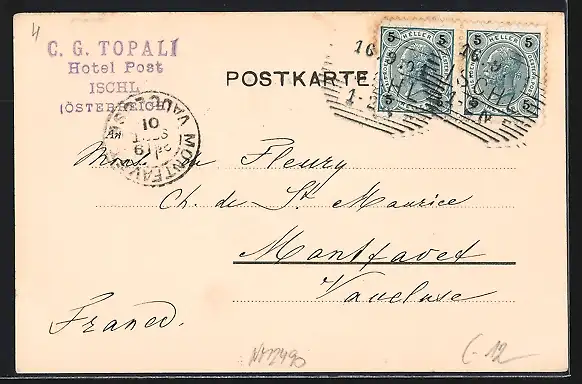 4
C. G. TOPALI
Hotel Post
ISCHL
(ÖSTERREICH)
POSTKARTE
5 HELLER 5
5 HELLER 5
16 9
ISCHL
MONTFAVET
VAUCLUSE
19
SEPT
01
Fleury
Ch. de St Maurice
Montfavet
Vaucluse
France.
C-12